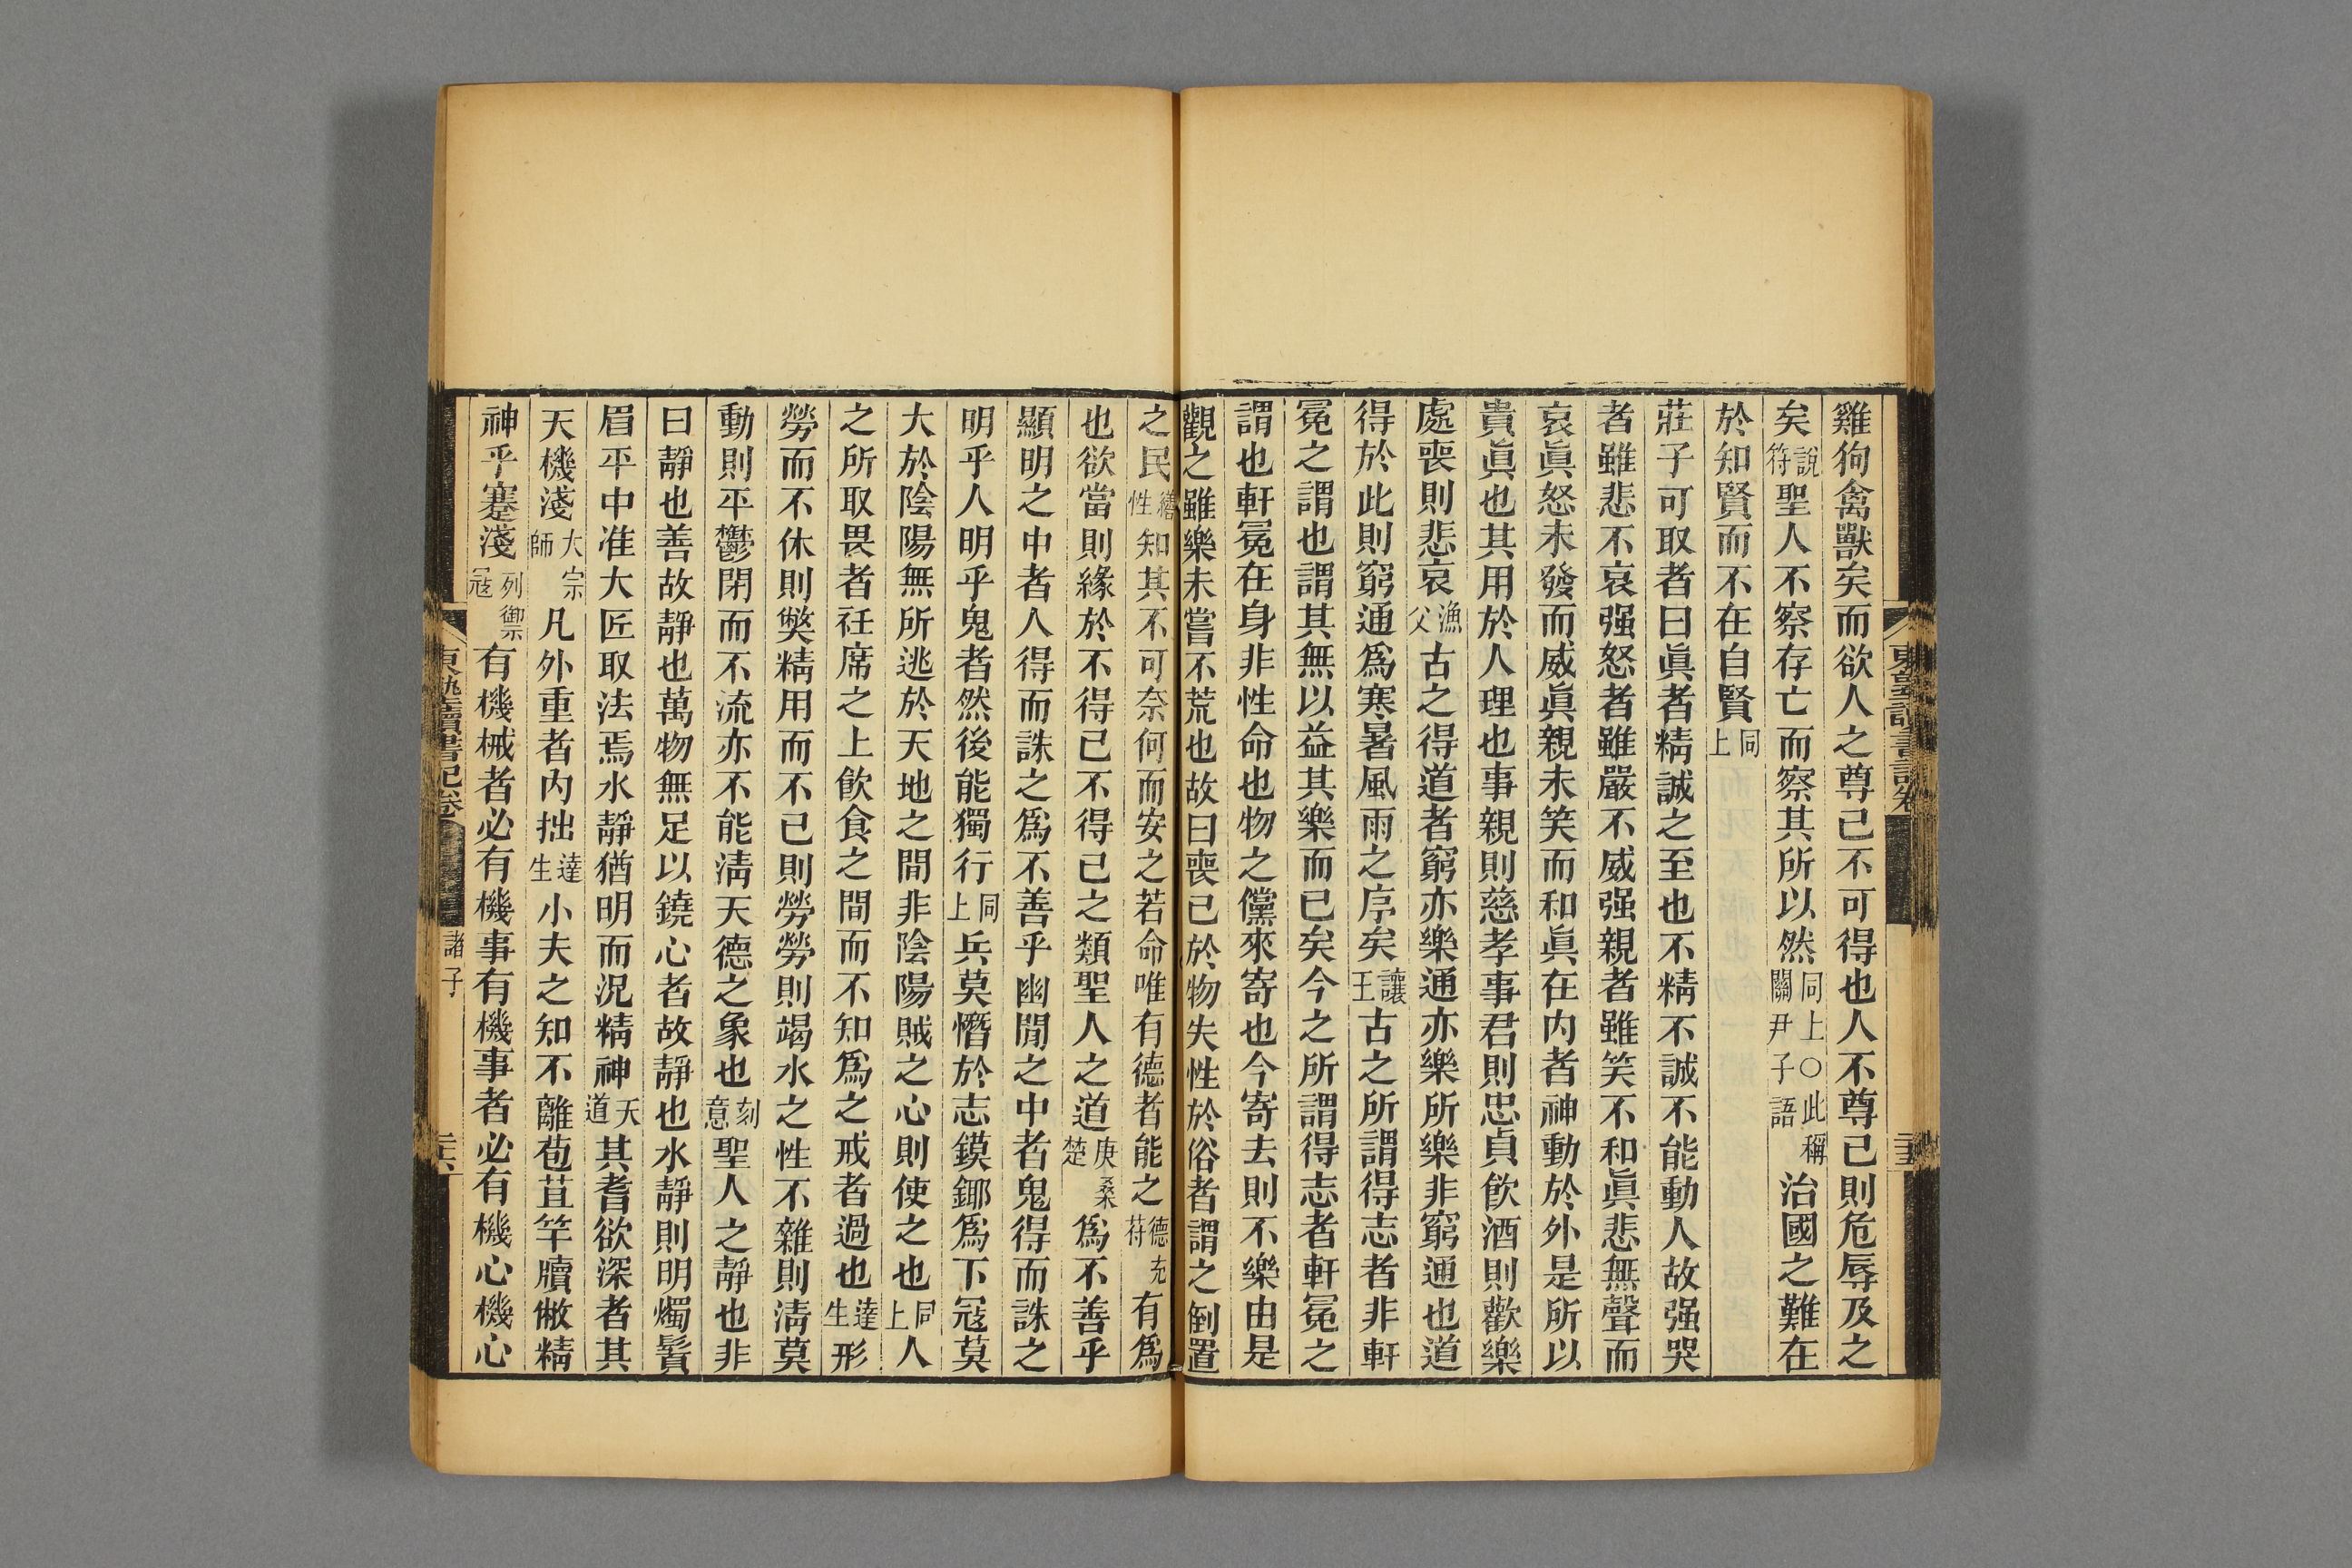 雞狗禽獸矣而欲人之尊己不可得也人不尊己則危辱及之
矣說符聖人不察存亡而察其所以然同上○此稱關尹子語治國之難在
於知賢而不在自賢同上
莊子可取者曰眞者精誠之至也不精不誠不能動人故强哭
者雖悲不哀强怒者雖嚴不威强親者雖笑不和眞悲無聲而
哀眞怒未發而威眞親未笑而和眞在内者神動於外是所以
貴眞也其用於人理也事親則慈孝事君則忠貞飮酒則歡樂
處喪則悲哀漁父古之得道者窮亦樂通亦樂所樂非窮通也道
得於此則窮通爲寒暑風雨之序矣讓王古之所謂得志者非軒
冕之謂也謂其無以益其樂而已矣今之所謂得志者軒冕之
謂也軒冕在身非性命也物之儻來寄也今寄去則不樂由是
觀之雖樂未嘗不荒也故曰喪已於物失性於俗者謂之倒置
之民繕性知其不可奈何而安之若命唯有德者能之德充符有爲
也欲當則緣於不得已不得已之類聖人之道庚桑楚爲不善乎
顯明之中者人得而誅之爲不善乎幽閒之中者鬼得而誅之
明乎人明乎鬼者然後能獨行同上兵莫憯於志鏌鋣爲下寇莫
大於陰陽無所逃於天地之間非陰陽賊之心則使之也同上人
之所取畏者衽席之上飮食之間而不知爲之戒者過也達生形
勞而不休則獘精用而不已則勞勞則竭水之性不雜則淸莫
動則平鬱閉而不流亦不能淸天德之象也刻意聖人之靜也非
曰靜也善故靜也萬物無足以鐃心者故靜也水靜則明燭鬚
眉平中准大匠取法焉水靜猶明而況精神天道其耆欲深者其
天機淺大宗師凡外重者内拙達生小夫之知不離苞苴竿牘敝精
神乎蹇淺列禦寇有機械者必有機事有機事者必有機心機心
東塾讀書記卷
諸子